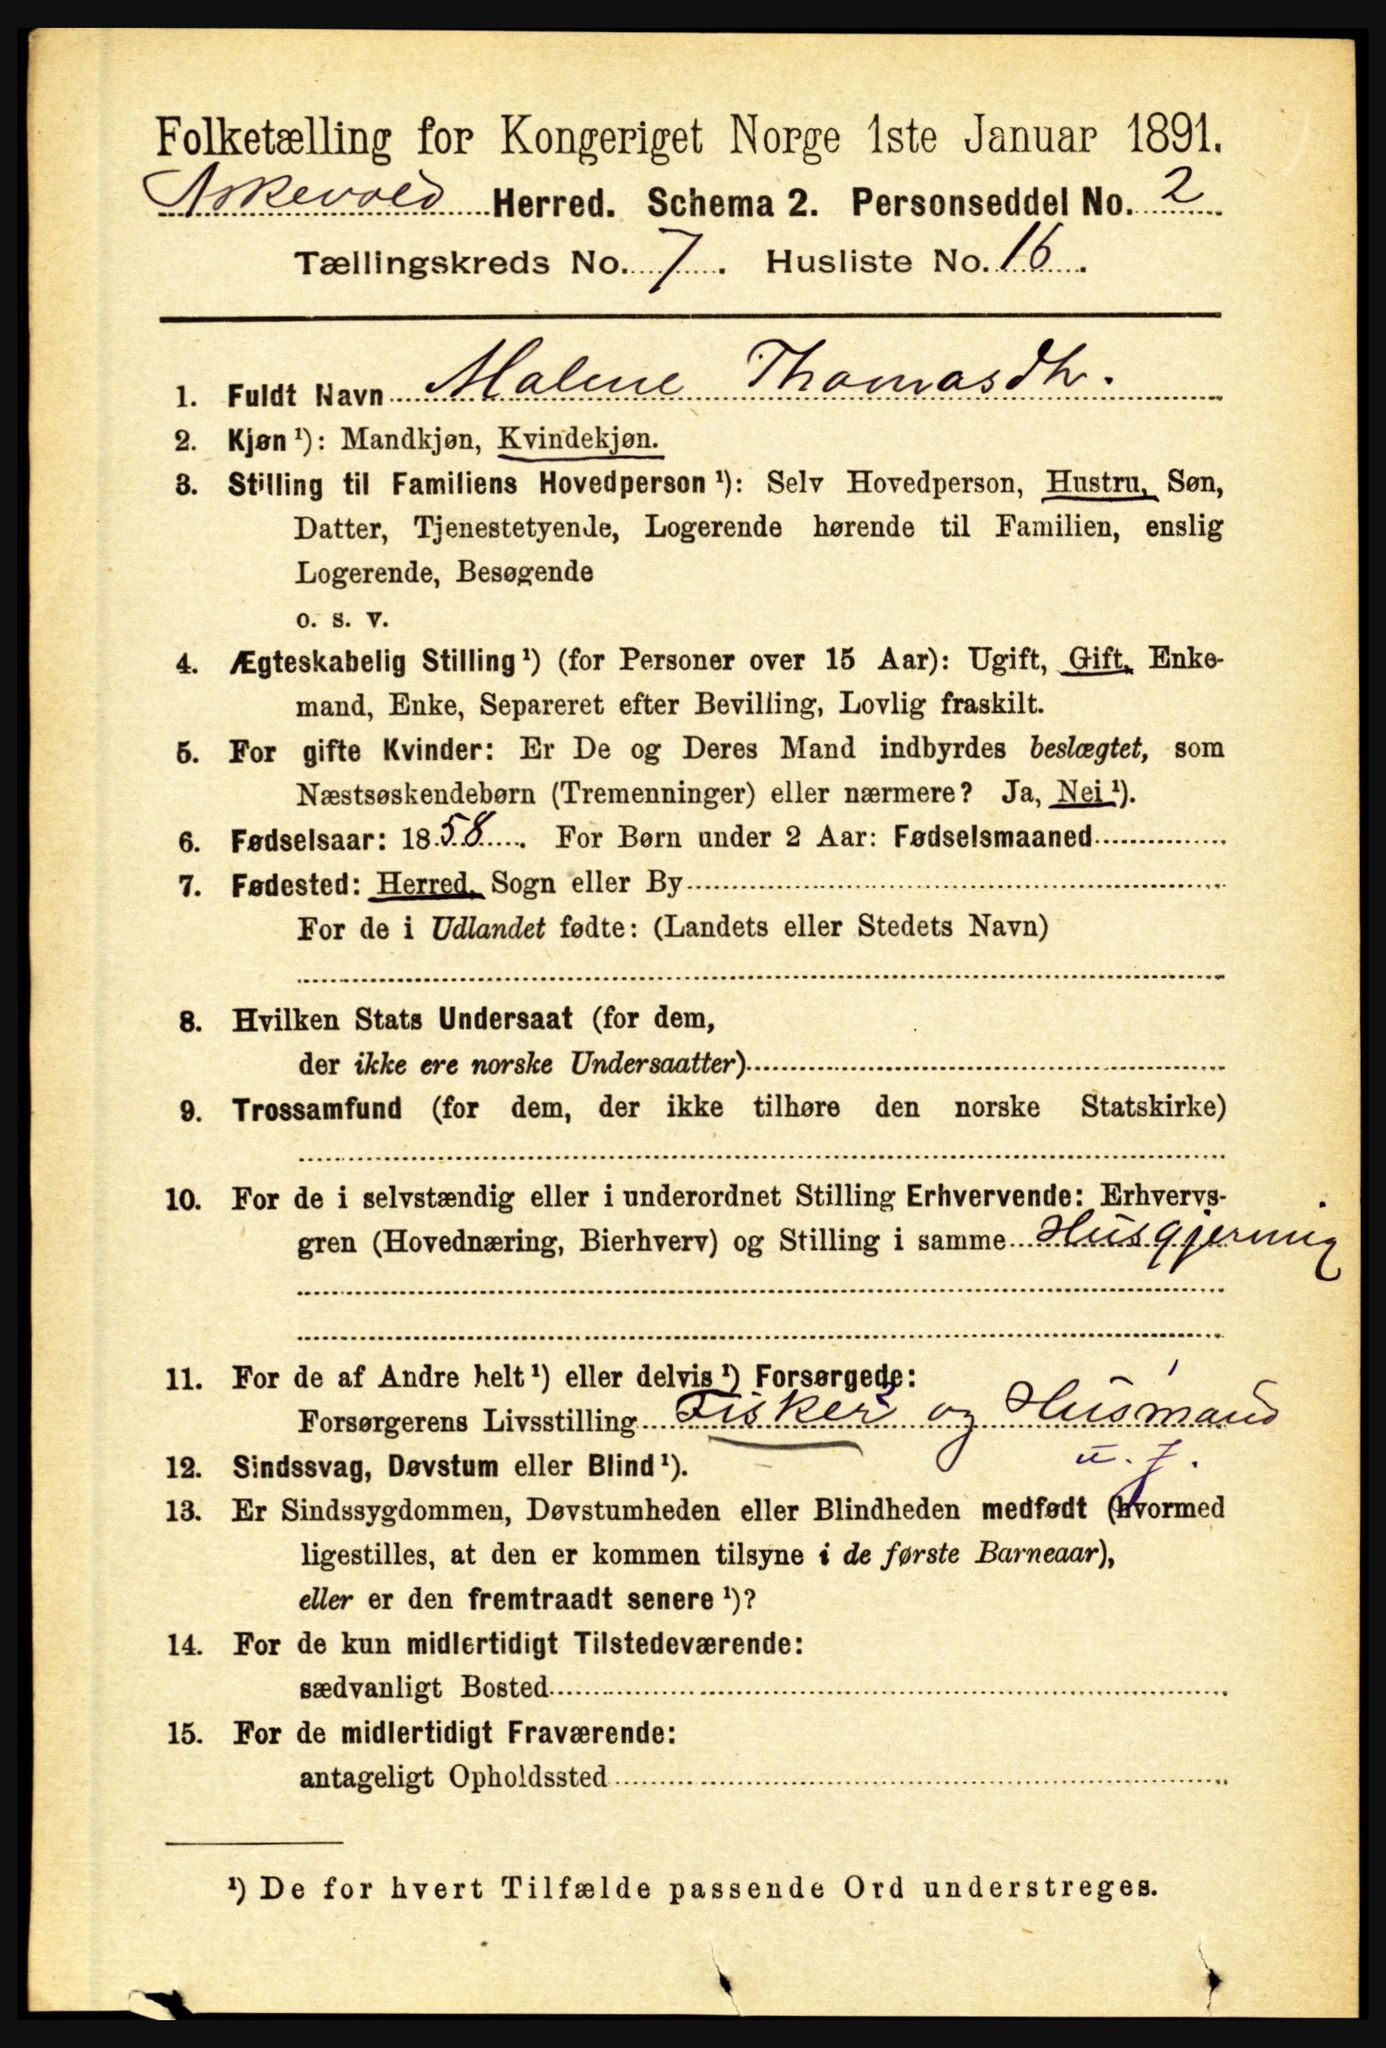 Folketælling for Kongeriget Norge 1ste Januar 1891.
Askevold Herred. Schema 2. Personseddel No. 2
Tællingskreds No. 7. Husliste No. 16.
1. Fuldt Navn Malene Thomasdtr.
2. Kjøn ¹): Mandkjøn, Kvindekjøn.
3. Stilling til Familiens Hovedperson ¹): Selv Hovedperson, Hustru, Søn,
Datter, Tjenestetyende, Logerende hørende til Familien, enslig
Logerende, Besøgende
o. s. v.
4. Ægteskabelig Stilling ¹) (for Personer over 15 Aar): Ugift, Gift, Enke-
mand, Enke, Separeret efter Bevilling, Lovlig fraskilt.
5. For gifte Kvinder: Er De og Deres Mand indbyrdes beslægtet, som
Næstsøskendebørn (Tremenninger) eller nærmere? Ja, Nei ¹).
6. Fødselsaar: 1858. For Børn under 2 Aar: Fødselsmaaned
7. Fødested: Herred, Sogn eller By
For de i Udlandet fødte: (Landets eller Stedets Navn)
8. Hvilken Stats Undersaat (for dem,
der ikke ere norske Undersaatter)
9. Trossamfund (for dem, der ikke tilhøre den norske Statskirke)
10. For de i selvstændig eller i underordnet Stilling Erhvervende: Erhvervs-
gren (Hovednæring, Bierhverv) og Stilling i samme Husgjerning
11. For de af Andre helt ¹) eller delvis ¹) Forsørgede:
Forsørgerens Livsstilling Fisker og Husmand
u. j.
12. Sindssvag, Døvstum eller Blind ¹).
13. Er Sindssygdommen, Døvstumheden eller Blindheden medfødt (hvormed
ligestilles, at den er kommen tilsyne i de første Barneaar),
eller er den fremtraadt senere ¹)?
14. For de kun midlertidigt Tilstedeværende:
sædvanligt Bosted
15. For de midlertidigt Fraværende:
antageligt Opholdssted
¹) De for hvert Tilfælde passende Ord understreges.